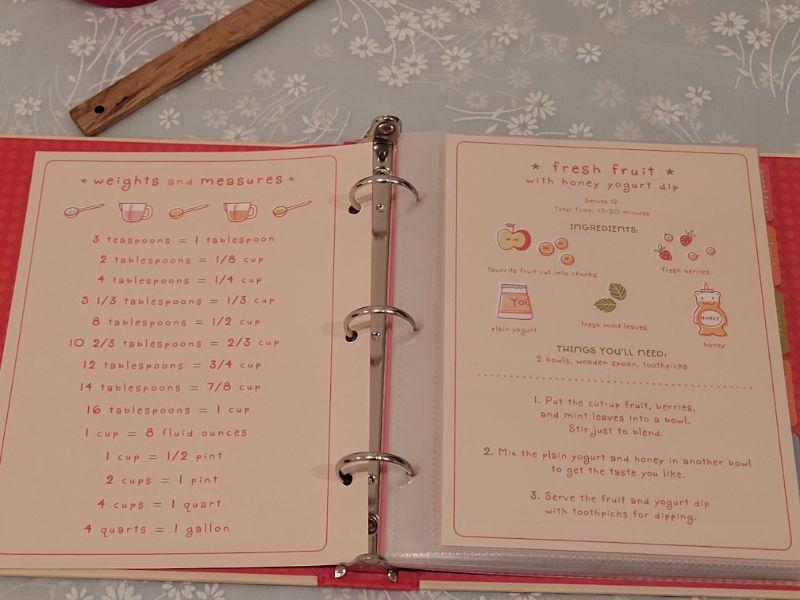 weights and measures
3 teaspoons = 1 tablespoon
2 tablespoons = 1/8 cup
4 tablespoons = 1/4 cup
5 1/3 tablespoons = 1/3 cup
8 tablespoons = 1/2 cup
10 2/3 tablespoons = 2/3 cup
12 tablespoons = 3/4 cup
14 tablespoons = 7/8 cup
16 tablespoons = 1 cup
1 cup = 8 fluid ounces
1 cup = 1/2 pint
2 cups = 1 pint
4 cups = 1 quart
4 quarts = 1 gallon
fresh fruit
with honey yogurt dip
Serves 12
Total Time: 10-20 minutes
INGREDIENTS:
favorite fruit cut into chunks
fresh berries
YO
HONEY
plain yogurt
fresh mint leaves
honey
THINGS YOU'LL NEED:
2 bowls, wooden spoon, toothpicks
1. Put the cut-up fruit, berries,
and mint leaves into a bowl.
Stir just to blend.
2. Mix the plain yogurt and honey in another bowl
to get the taste you like.
3. Serve the fruit and yogurt dip
with toothpicks for dipping.